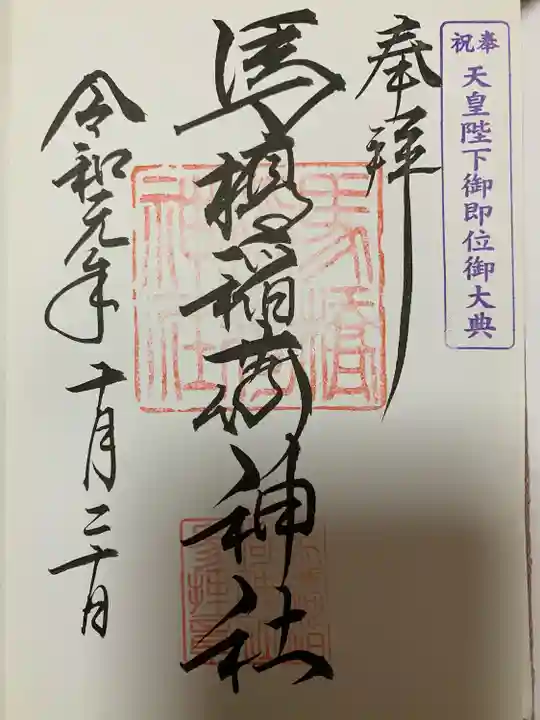 奉祝
天皇陛下御即位御大典
奉拝
馬橋稲荷神社
令和元年十月二十日
馬橋
稲荷
神社